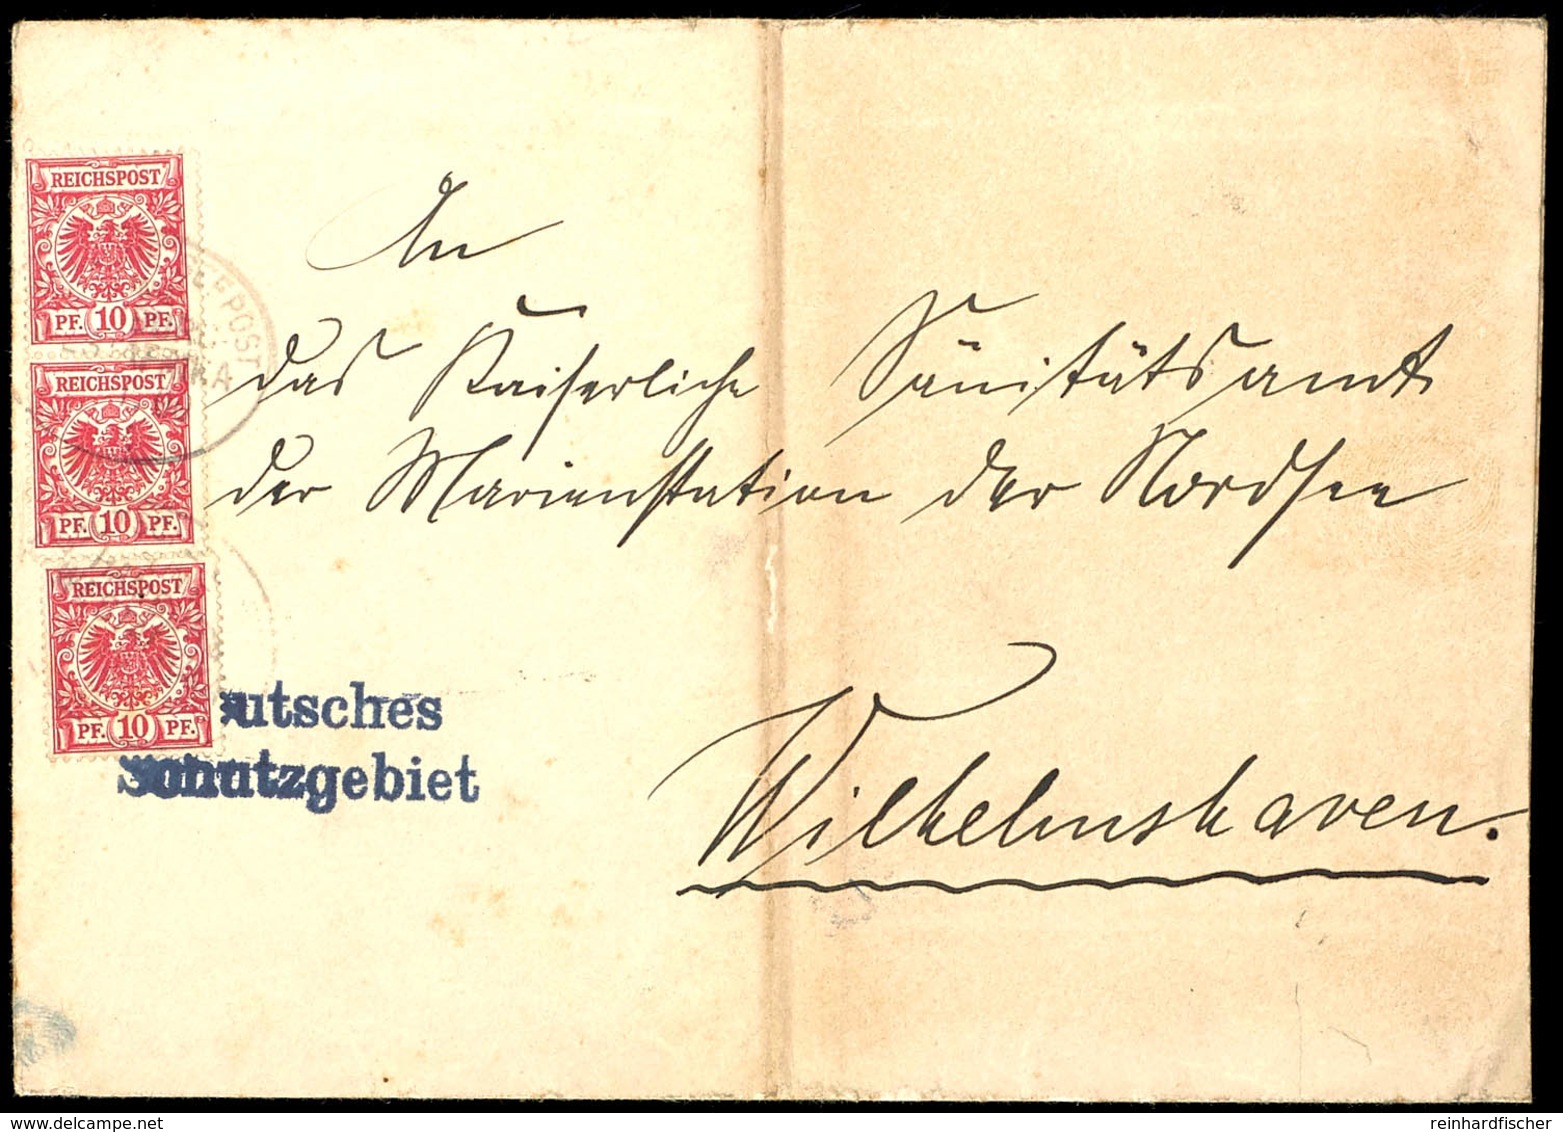 REICHSPOST
PF. 10 PF.
REICHSPOST
PF. 10 PF.
REICHSPOST
PF. 10 PF.
EEPOST
KA
An
das Kaiserliche Sänitätsamt
der Marienstation der Nordsee
Wilhelmshaven.
eutsches
Schutzgebiet
reinhardfischer